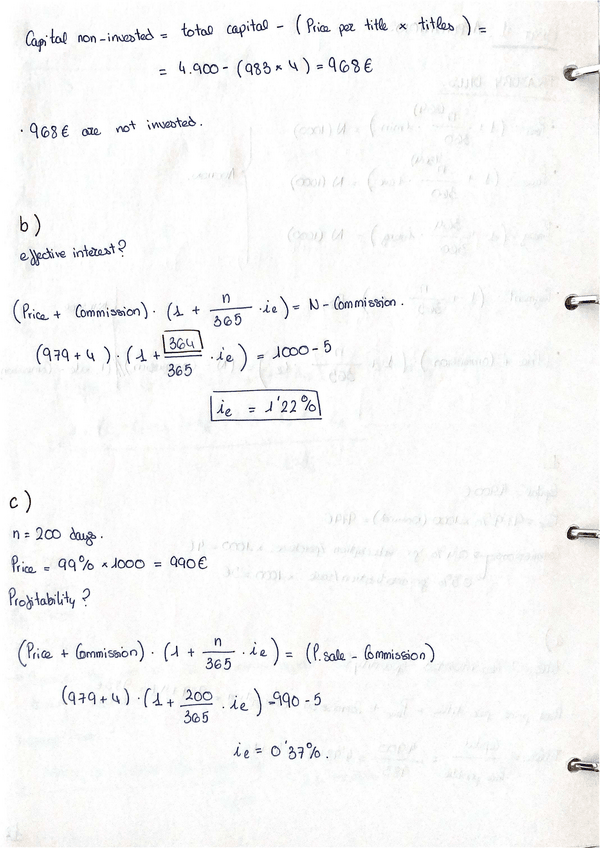 Capital non-invested = total capital - (Price per title × titles) =
= 4.900 - (983 × 4) = 968€
· 968€ are not invested.
b)
effective interest?
(Price + Commission) · (1 + n/365 · ie) = N - Commission.
(979+4) · (1 + 364/365 · ie) = 1000 - 5
ie = 1'22%
c)
n = 200 days.
Price = 99% × 1000 = 990€
Profitability?
(Price + Commission) · (1 + n/365 · ie) = (P.sale - Commission)
(979+4) · (1 + 200/365 · ie) = 990 - 5
ie = 0'37%.